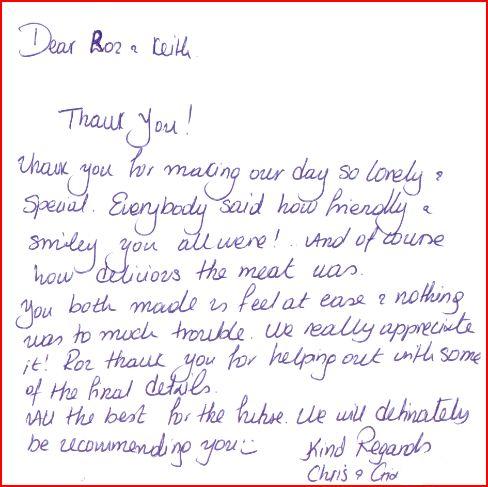 Dear Roz & Keith
Thank You!
Thank you for making our day so lovely &
special. Everybody said how friendly &
smiley you all were! And of course
how delicious the meat was.
You both made us feel at ease & nothing
was to much trouble. We really appreciate
it! Roz thank you for helping out with some
of the final details.
All the best for the future. We will definately
be recommending you :)
Kind Regards
Chris &